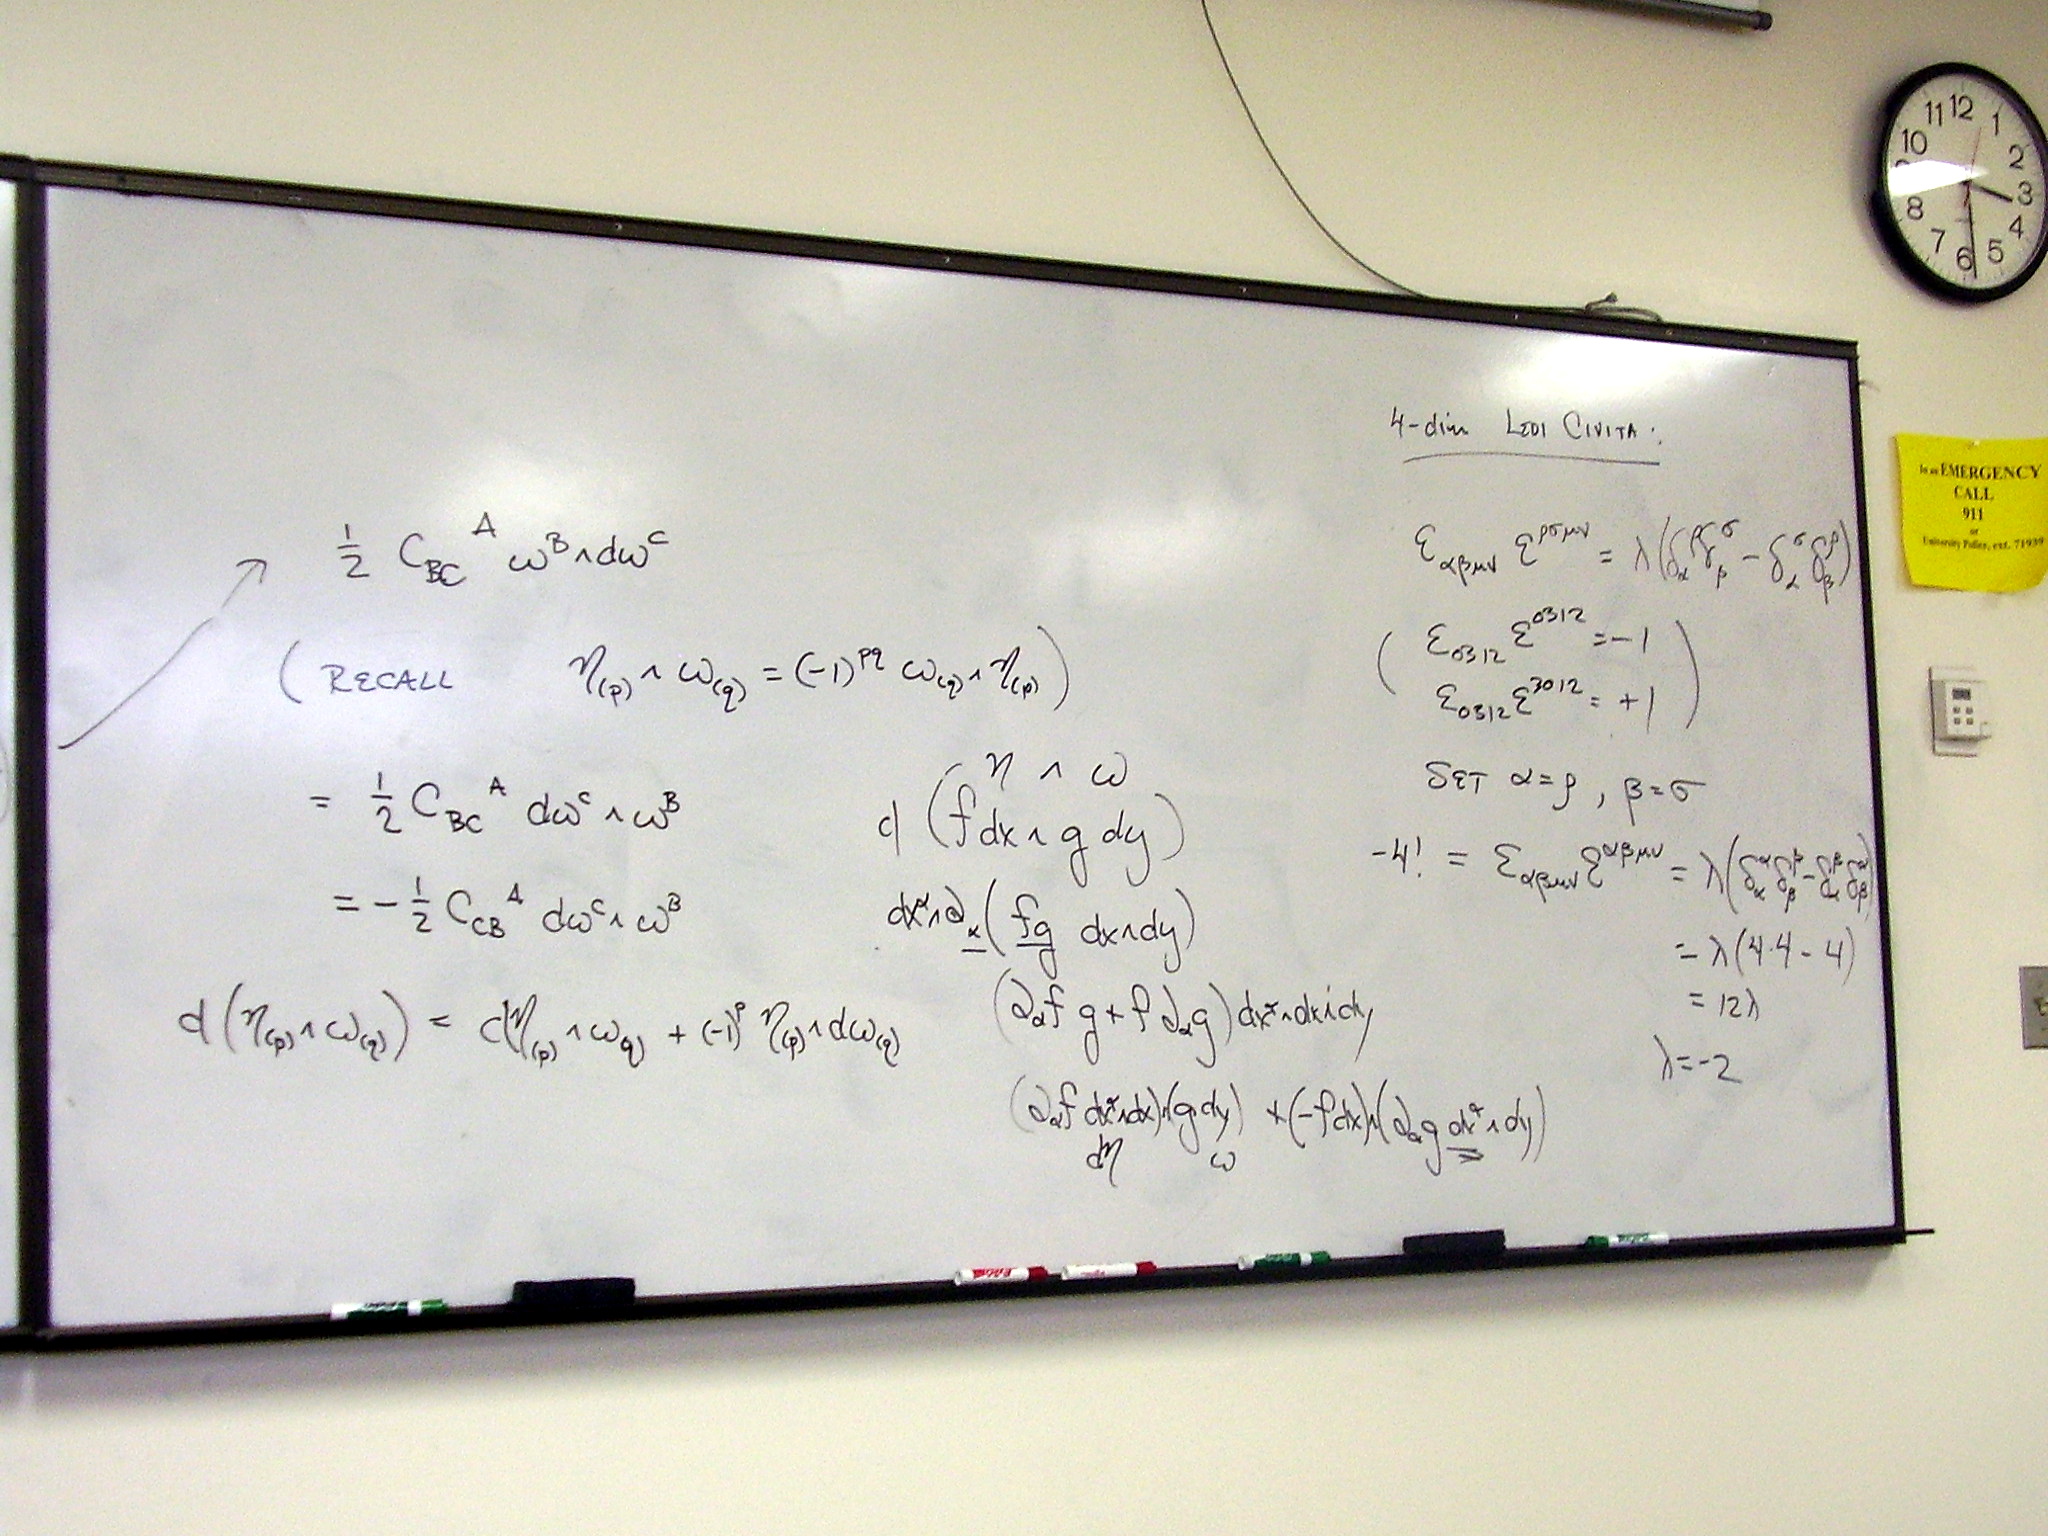 ½ C_{BC}^A ω^B ∧ dω^C
( RECALL η_{(p)} ∧ ω_{(q)} = (-1)^{pq} ω_{(q)} ∧ η_{(p)} )
= ½ C_{BC}^A dω^C ∧ ω^B
= -½ C_{CB}^A dω^C ∧ ω^B
d(η_{(p)} ∧ ω_{(q)}) = dη_{(p)} ∧ ω_{(q)} + (-1)^p η_{(p)} ∧ dω_{(q)}
η ∧ ω
d (f dx ∧ g dy)
dx^α ∧ ∂_α (fg dx ∧ dy)
(∂_α f g + f ∂_α g) dx^α ∧ dx ∧ dy
(∂_α f dx^α ∧ dx) ∧ (g dy) + (-f dx) ∧ (∂_α g dx^α ∧ dy)
dη ω
4-dim LEVI CIVITA:
ε_{αβμν} ε^{ρσμν} = λ(δ_α^ρ δ_β^σ - δ_α^σ δ_β^ρ)
( ε_{0312} ε^{0312} = -1
ε_{0312} ε^{3012} = +1 )
SET α=ρ, β=σ
-4! = ε_{αβμν} ε^{αβμν} = λ(δ_α^α δ_β^β - δ_α^β δ_β^α)
= λ(4·4 - 4)
= 12λ
λ=-2
11 12 1
10 2
3
8 4
7 6 5
In an EMERGENCY
CALL
911
or
University Police, ext. 71939